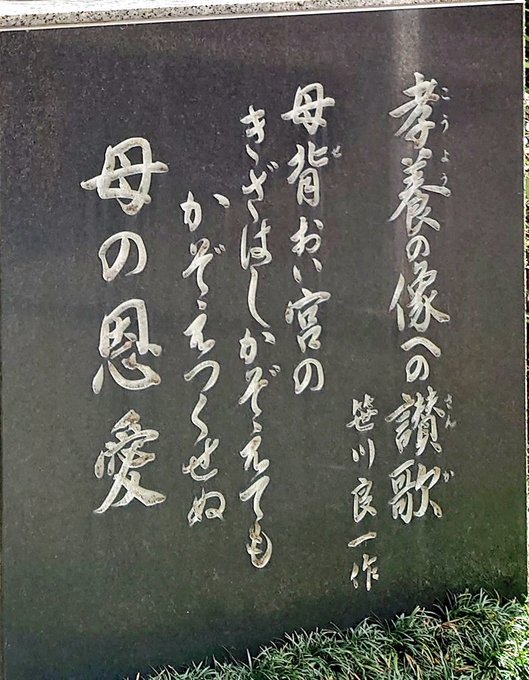 孝養の像への讃歌
こうよう
さんか
笹川良一作
母背おい宮の
せ
きざはしかぞえても
かぞえつくせぬ
母の恩愛